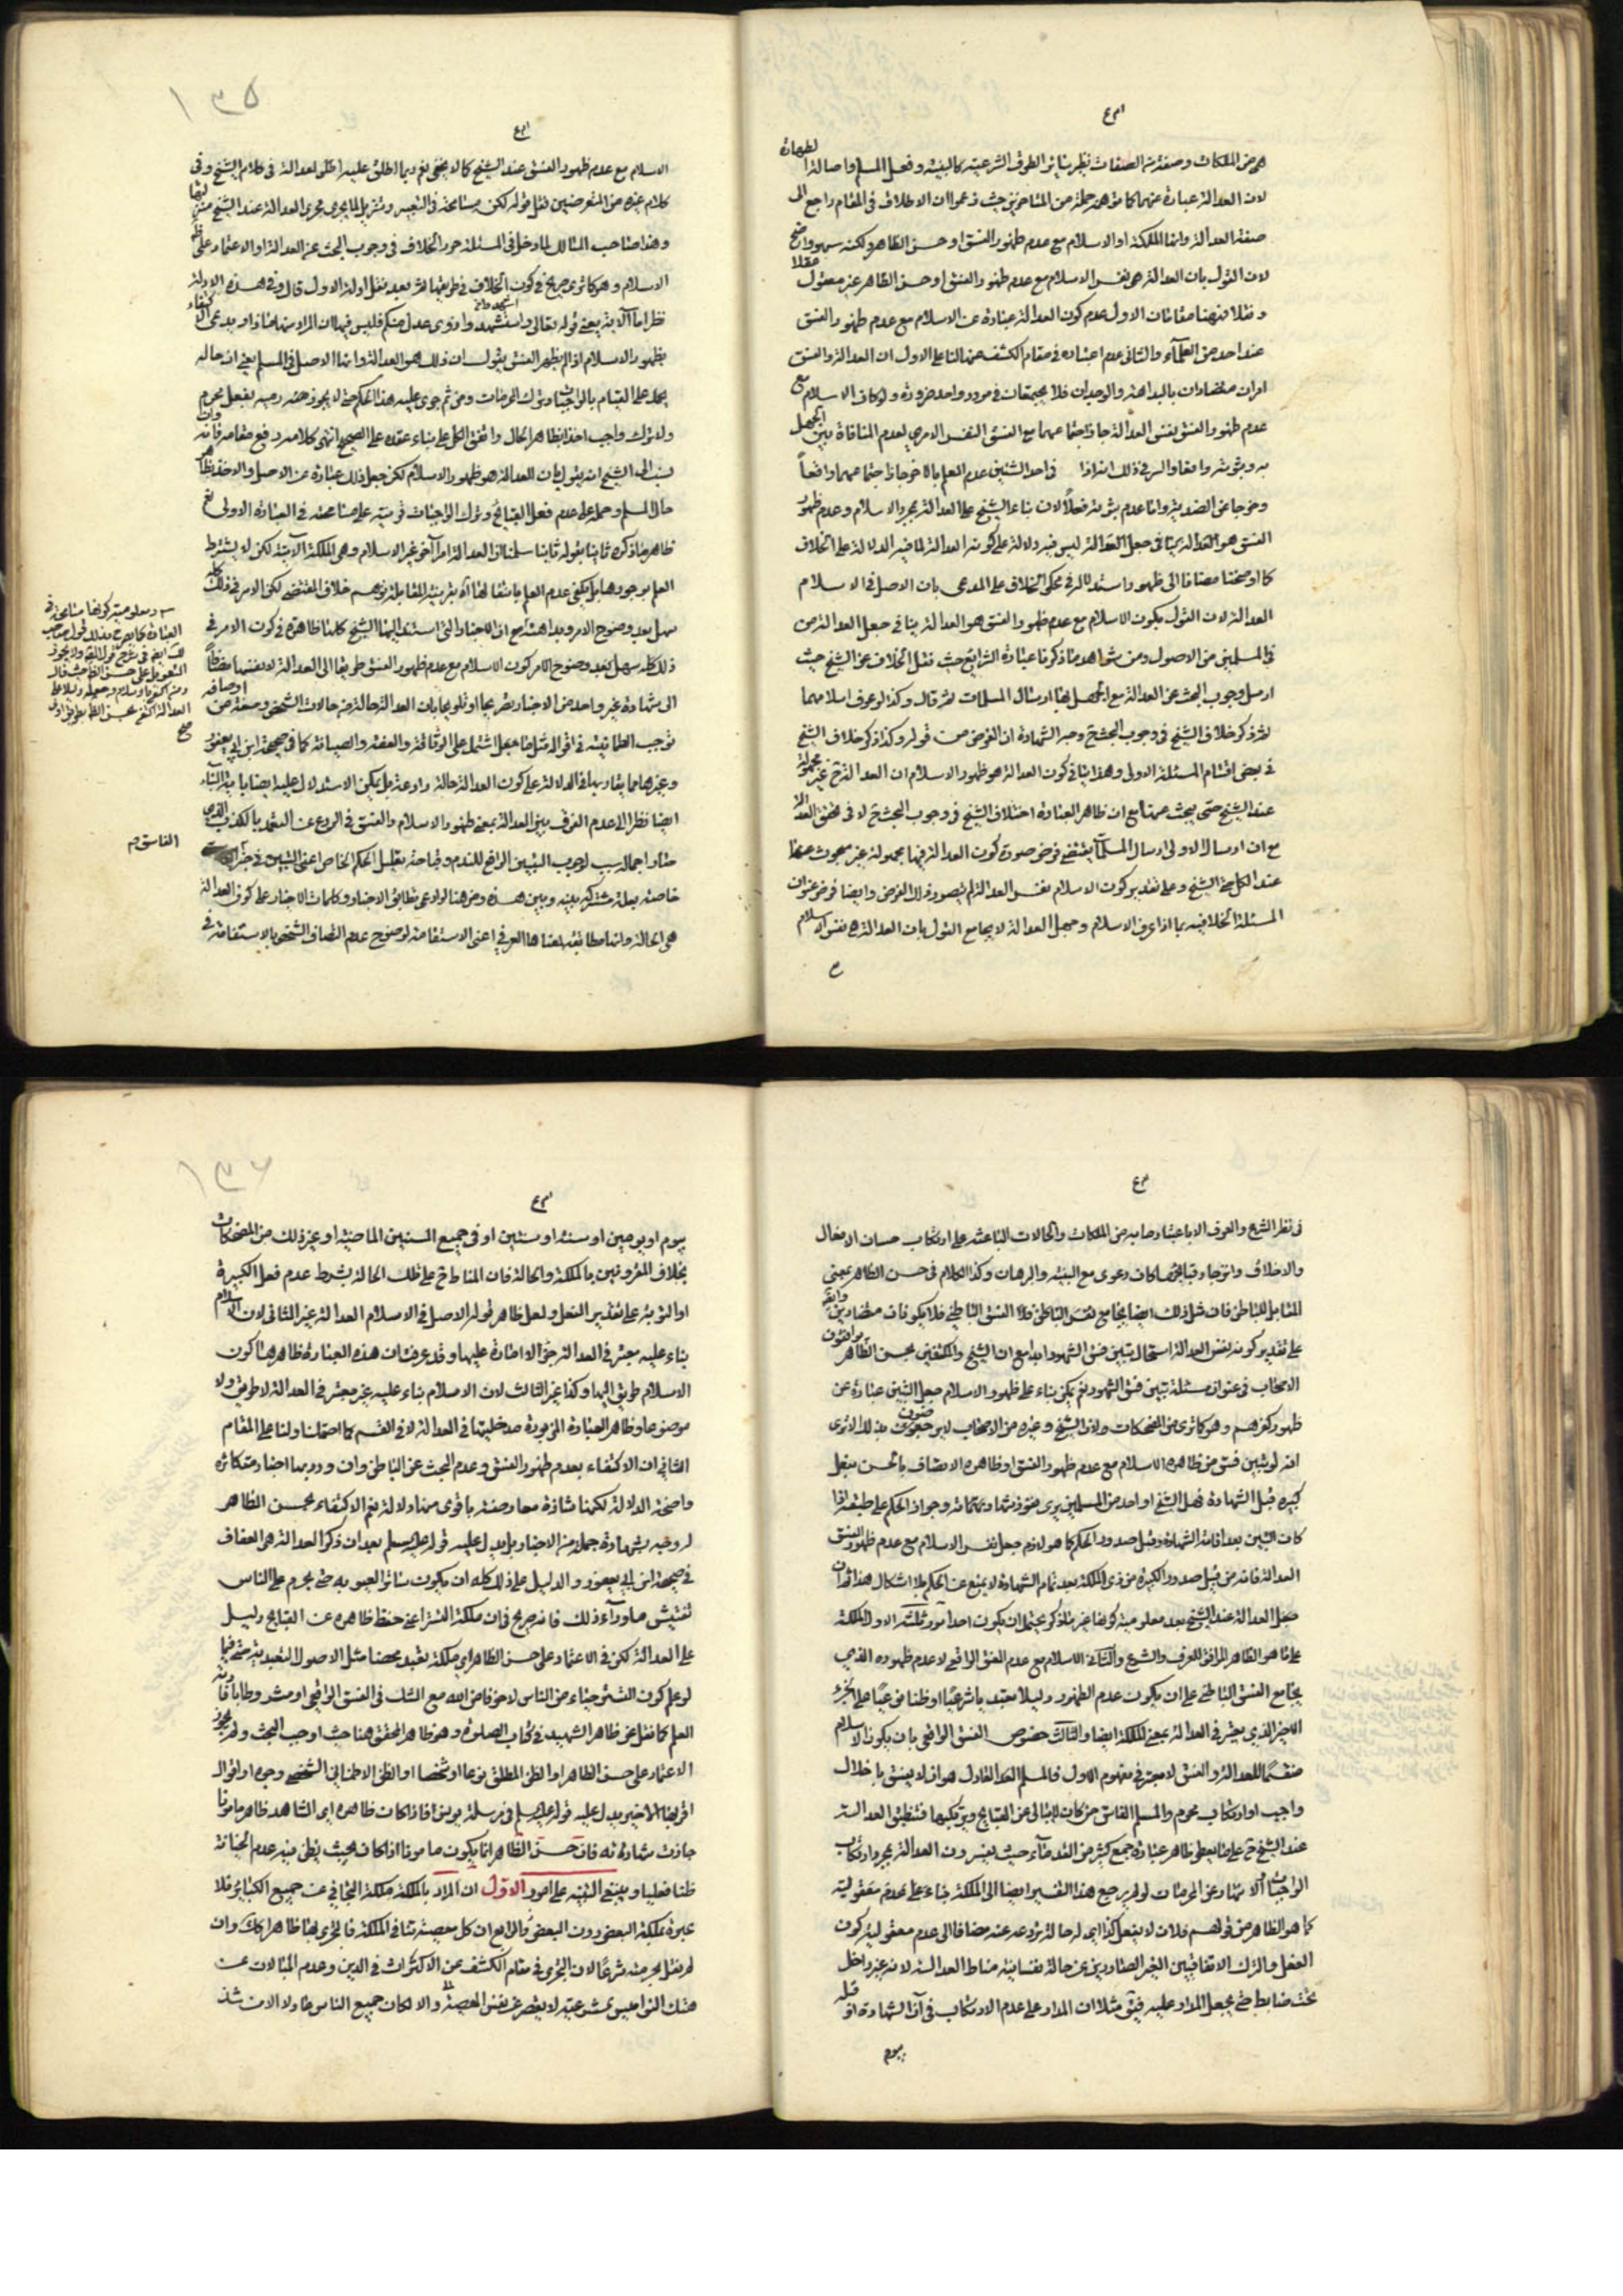 هی من الملکات وصفة من الصفات نظیر سائر الطرق الشرعیة کالبینة وفعل المسلم واصالة الطهارة
لان العدالة عبارة عنهما کما توهمه جملة من المتاخرین حیث زعموا ان الاطلاق فی المقام راجع الی
صفة العدالة وانها الملکة او الاسلام مع عدم ظهور الفسق او حسن الظاهر ولکنه سهو واضح
لان القول بان العدالة هی نفس الاسلام مع عدم ظهور الفسق او حسن الظاهر غیر معقول عقلا
ونقلا فههنا مقامان الاول عدم کون العدالة عبارة عن الاسلام مع عدم ظهور الفسق
عند احد من العلمآء والثانی عدم اعتباره فی مقام الکشف عنها لنا علی الاول ان العدالة والفسق
امران متضادان بالبداهة والوجدان فلا یجتمعان فی مورد واحد ضرورة ولو کان الاسلام مع
عدم ظهور الفسق نفس العدالة جاز اجتماعهما مع الفسق النفس الامری لعدم المنافاة بین الجهل
به وثبوته واقعا والسر فی ذلک انه اذا فی احد الشیئین عدم العلم بالاخر جاز اجتماعهما واقعاً
الفسق هو العدالة ینافی جعل العدالة لیس فیه دلالة علی کونه العدالة لما فیه الدلالة علی الخلاف
کما اوضحنا مضافا الی ظهور استدلاله فی محکی الخلاف علی المدعی بان الاصل فی الاسلام
العدالة لان القول بکون الاسلام مع عدم ظهور الفسق هو العدالة ینافی جعل العدالة من
فی المسلمین من الاصول ومن شواهد ما ذکرنا عبارة الشرایع حیث نقل الخلاف عن الشیخ حیث
ارسل وجوب البحث عن العدالة مع الجهل بها ارسال المسلمات ثم قال وکذا لو عرف اسلامهما
ثم ذکر خلاف الشیخ فی وجوب البحث
فی بعض اقسام المسئلة الاولی وهذا ینافی کون العدالة هو ظهور الاسلام ان العدالة ح غیر مجهولة
عند الشیخ حتی یبحث عنها مع ان ظاهر العبارة اختلاف الشیخ فی وجوب البحث ح لا فی تحقق العدالة
مع ان ارسال الاولی ارسال المسلمآت یقتضی فرض صورة کون العدالة فیها مجهولة غیر مبحوث عنها
عند الکل حتی الشیخ وعلی تقدیر کون الاسلام نفس العدالة لم یتصور ذلک الفرض وایضا فرض عنوان
المسئلة الخلافیة بما اذا عرف الاسلام وجهل العدالة لا یجامع القول بان العدالة هی نفس الاسلام
١٣۵
الاسلام مع عدم ظهور الفسق عند الشیخ کما لا یخفی نعم ربما اطلق علیه احق العدالة فی کلام الشیخ وفی
کلام غیره من المتعرضین لنقل قوله لکن مسامحة فی التعبیر وتنزیل لما یجری مجری العدالة عند الشیخ منزلتها
وهذا صاحب المسالک لما دخل فی المسئلة حرر الخلاف فی وجوب البحث عن العدالة او الاعتماد علی ظ
الاسلام وهو کما تری صریح فی کون الخلاف فی طریقها ثم بعد نقل ادلة الاول قال وفی هذه الادلة
نظر اما الآیة یعنی قوله تعالی واستشهدوا ذوی عدل منکم فلیس فیها ان المراد
بظهور الاسلام اذا لم یظهر الفسق بقول ان ذلک هو العدالة وانها الاصل فی المسلم یعنی ان حاله
یحمل علی القیام بالواجبات وترک المحرمات ومن ثم جری علیه هذا الحکم حتی لا یجوز رمیه بفعل محرم
ولا ترک واجب اخذا بظاهر الحال واتفق الکل علی بناء عقده علی الصحیح انتهی کلامه رفع مقامه فانه وان
نسب الی الشیخ انه یقول بان العدالة هو ظهور الاسلام لکن جعل ذلک عبارة عن الاصل والاخذ بظاهر
حال المسلم وحمله علی عدم فعل القبایح وترک الواجبات قرینة علی مسامحته فی العبارة الاولی نعم
ظاهر ما ذکره ثانیا بقوله ثانیا سلمنا ان العدالة امر آخر غیر الاسلام وهی الملکة الآتیة لکن لا یشترط
العلم بوجودها بل یکفی عدم العلم بانتفائها آه بقرینة المقابلة توهم خلاف المقتضی لکن الامر فی ذلک کله
سهل بعد وضوح الامر وبداهته مع ان الاخبار التی استند الیها الشیخ کلها ظاهرة فی کون الامر فی
ذلک کله سهل بعد وضوح الامر کون الاسلام مع عدم ظهور الفسق طریقا الی العدالة لا نفسها مضافاً
الی شهادة غیر واحد من الاخبار تصریحا او تلویحا بان العدالة حالة من حالات الشخص وصفة من اوصافه
توجب الطمانینة فی اقواله مثل ما اشتمل علی الوثاقة والعفة والصیانة کما فی صحیحة ابن ابی یعفور
وغیرها مما یقاربها فی الدلالة علی کون العدالة حالة رادعة بل یمکن الاستدلال علیه ایضا بآیة النبآء
ایضا نظرا الی عدم الفرق بین العدالة بمعنی ظهور الاسلام والفسق فی الردع عن التعمد بالکذب
خاصة بعلة مشترکة بینه وبین هذه ومن هنا لو ادعی تطابق الاخبار وکلمات الاخبار علی کون العدالة
هی الحالة وانها مطابقة لمعناها العرفی اعنی الاستقامة لوضوح عدم اتصاف الشخص بالاستقامة فی
الفاسق م
فی نظر الشرع والعرف الا باعتبار ما به من الملکات والحالات الباعثة علی ارتکاب حسان الافعال
والاخلاق وانزجار قبایحها کان دعوی مع البینة والبرهان وکذا الکلام فی حسن الظاهر بمعنی
المقابل للباطن فان مثل ذلک ایضا یجامع فسق الباطن والفسق الباطنی فلا یکونان متضادین
علی تقدیر کونه نفس العدالة استحال تبین فسق الشهود ابدا مع ان الشیخ والمکتفین بحسن الظاهر
الاصحاب فی عنوان مسئلة تبین فسق الشهود نعم یمکن بناء علی ظهور الاسلام جعل التبین عبارة عن
ظهور کفرهم وهو کما تری من المضحکات ولان الشیخ وغیره من الاصحاب لا یرضون بذلک الا تری
انه لو تبین فسق من ظاهره الاسلام مع عدم ظهور الفسق او ظاهره الاتصاف بالحسن بفعل
کبیرة قبل الشهادة فهل الشیخ او احد من المسلمین یری نفوذ شهادته وجواز الحکم علی طبقه اذا
کان التبین بعد اقامة الشهادة وقبل صدور الحکم کما هو لازم جعل نفس الاسلام مع عدم ظهور الفسق
العدالة فانه من قبیل صدور الکبیرة من ذی الملکة بعد تمام الشهادة لا یمنع عن الحکم بلا اشکال
جعل العدالة عند الشیخ بعد معلومیة کونها غیر ما ذکر یحتمل ان یکون احد امور ثلثة الاول الملکة
علی ما هو الظاهر الموافق للعرف والشرع والثانی الاسلام مع عدم الفسق الواقعی لا عدم ظهوره الذی
یجامع الفسق الباطنی علی ان یکون عدم الظهور دلیلا معتبرا شرعیا او ظنا نوعیا علی الجزء
الاخیر الذی یعتبر فی العدالة بمعنی الملکة ایضا والثالث خصوص الفسق الواقعی بان یکون الاسلام
مقسما للعدالة والفسق لا معتبرا فی مفهوم الاول فالمسلم العادل هو ان لا یفسق باخلال
واجب او ارتکاب محرم والمسلم الفاسق من کان لا یبالی عن القبایح ویرتکبها فتنطبق العدالة
عند الشیخ ح علی ما یعطی ظاهر عبارة جمع کثیر من القدمآء حیث یفسرون العدالة بمجرد ارتکاب
الواجبات والانزجار عن المحرمات لو لم یرجع هذا التفسیر ایضا الی الملکة بناء علی عدم معقولیته
کما هو الظاهر من قولهم فلان لا یفعل کذا ای له حالة تردعه عنه مضافا الی عدم معقولیة کون
الفعل والترک الاتفاقیین الغیر الصادرین عن حالة نفسانیة مناط العدالة لانه غیر داخل
تحت ضابط حتی یجعل المدار علیه فیق مثلا ان المدار علی عدم الارتکاب فی آن الشهادة او قبله
بیوم
١٣٦
بیوم او یومین او سنة او سنتین او فی جمیع السنین الماضیة او غیر ذلک من المضحکات
بخلاف المقرونین بالملکة والحالة فان المناط ح علی تلک الحالة بشرط عدم فعل الکبیرة
او التوبة علی تقدیر الفعل ولعل ظاهر قوله الاصل فی الاسلام العدالة غیر الثانی لان الاسلام
بناء علیه معتبر فی العدالة جزءا لا امارة علیها وقد عرفت ان هذه العبارة ظاهرها کون
الاسلام طریق الیها وکذا غیر الثالث لان الاسلام بناء علیه غیر معتبر فی العدالة لا طریق ولا
موضوعا وظاهر العبارة المزبورة مدخلیتها فی العدالة لا فی الفسق کما احتملنا ولنا علی المقام
الثانی ان الاکتفاء بعدم ظهور الفسق وعدم البحث عن الباطن وان ورد بها اخبار متکاثرة
واضحة الدلالة لکنها شاذة معارضة باقوی منها دلالة نعم الاکتفاء بحسن الظاهر
له وجه بشهادة جملة من الاخبار بل یدل علیه قوله علیه السلم بعد ان ذکر العدالة هی العفاف
فی صحیحة ابن ابی یعفور والدلیل علی ذلک کله ان یکون ساترا لعیوبه حتی یحرم علی الناس
تفتیش ما ورآء ذلک فانه صریح فی ان ملکة الستر اعنی حفظ ظاهره عن القبایح دلیل
علی العدالة لکن فی الاعتماد علی حسن الظاهر ای ملکة تعبد محضا مثل الاصول التعبدیة حتی فیما
لو علم کون الستر حیاء من الناس لا خوفا من الله مع الشک فی الفسق الواقعی او مشروطا بافادته
العلم کما نقل عن ظاهر الشهید فی کتاب الصلوة وهو ظاهر المحقق هنا حیث اوجب البحث ولم یجوز
الاعتماد علی حسن الظاهر او الظن المطلق نوعا او شخصا او الظن الاطمنانی الشخصی وجوه او اقوال
اقربها الاخیر یدل علیه قوله علیه السلم فی مرسلة یونس اذا کان ظاهره ای الشاهد ظاهرا مامونا
جازت شهادته فان حسن الظاهر انما یکون مامونا اذا کان بحیث یظن فیه عدم الخیانة
ظنا فعلیا وینبغی التنبیه علی امور الاول ان المراد بالملکة ملکة التجافی عن جمیع الکبائر فلا
عبرة بملکة البعض دون البعض والرابع ان کل معصیة تنافی الملکة فالتجری بها ظاهرا کک وان
لم نقل بحرمته شرعا لان التجری فی مقام الکشف عن الاکتراث فی الدین وعدم المبالات عن
هتک النوامیس الشرعیة لا یقصر عن نفس المعصیة والا لکان جمیع الناس عادلا الا من شذ